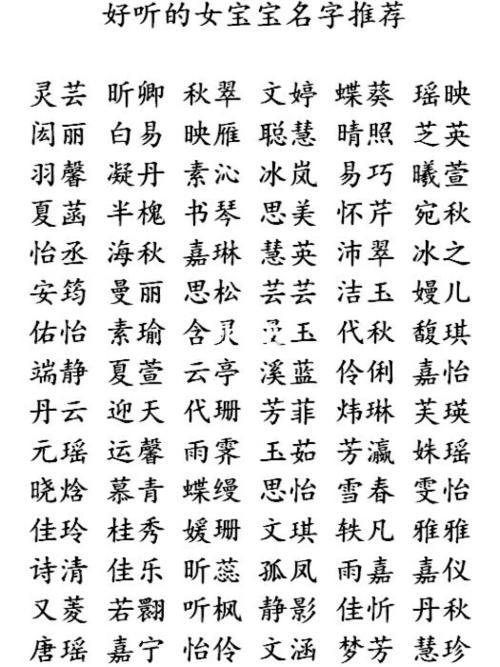 好听的女宝宝名字推荐
灵芸 昕卿 秋翠 文婷 蝶葵 瑶映
闳丽 白易 映雁 聪慧 晴照 芝英
羽馨 凝丹 素沁 冰岚 易巧 曦萱
夏菡 半槐 书琴 思美 怀芹 宛秋
怡丞 海秋 嘉琳 慧英 沛翠 冰之
安筠 曼丽 思松 芸芸 洁玉 嫚儿
佑怡 素瑜 含灵 玉 代秋 馥琪
端静 夏萱 云亭 溪蓝 伶俐 嘉怡
丹云 迎天 代珊 芳菲 炜琳 芙瑛
元瑶 运馨 雨霁 玉茹 芳瀛 姝瑶
晓焓 慕青 蝶缦 思怡 雪春 雯怡
佳玲 桂秀 媛珊 文琪 轶凡 雅雅
诗清 佳乐 昕蕊 孤凤 雨嘉 嘉仪
又菱 若翾 听枫 静影 佳忻 丹秋
唐瑶 嘉宁 怡伶 文涵 梦芳 慧珍